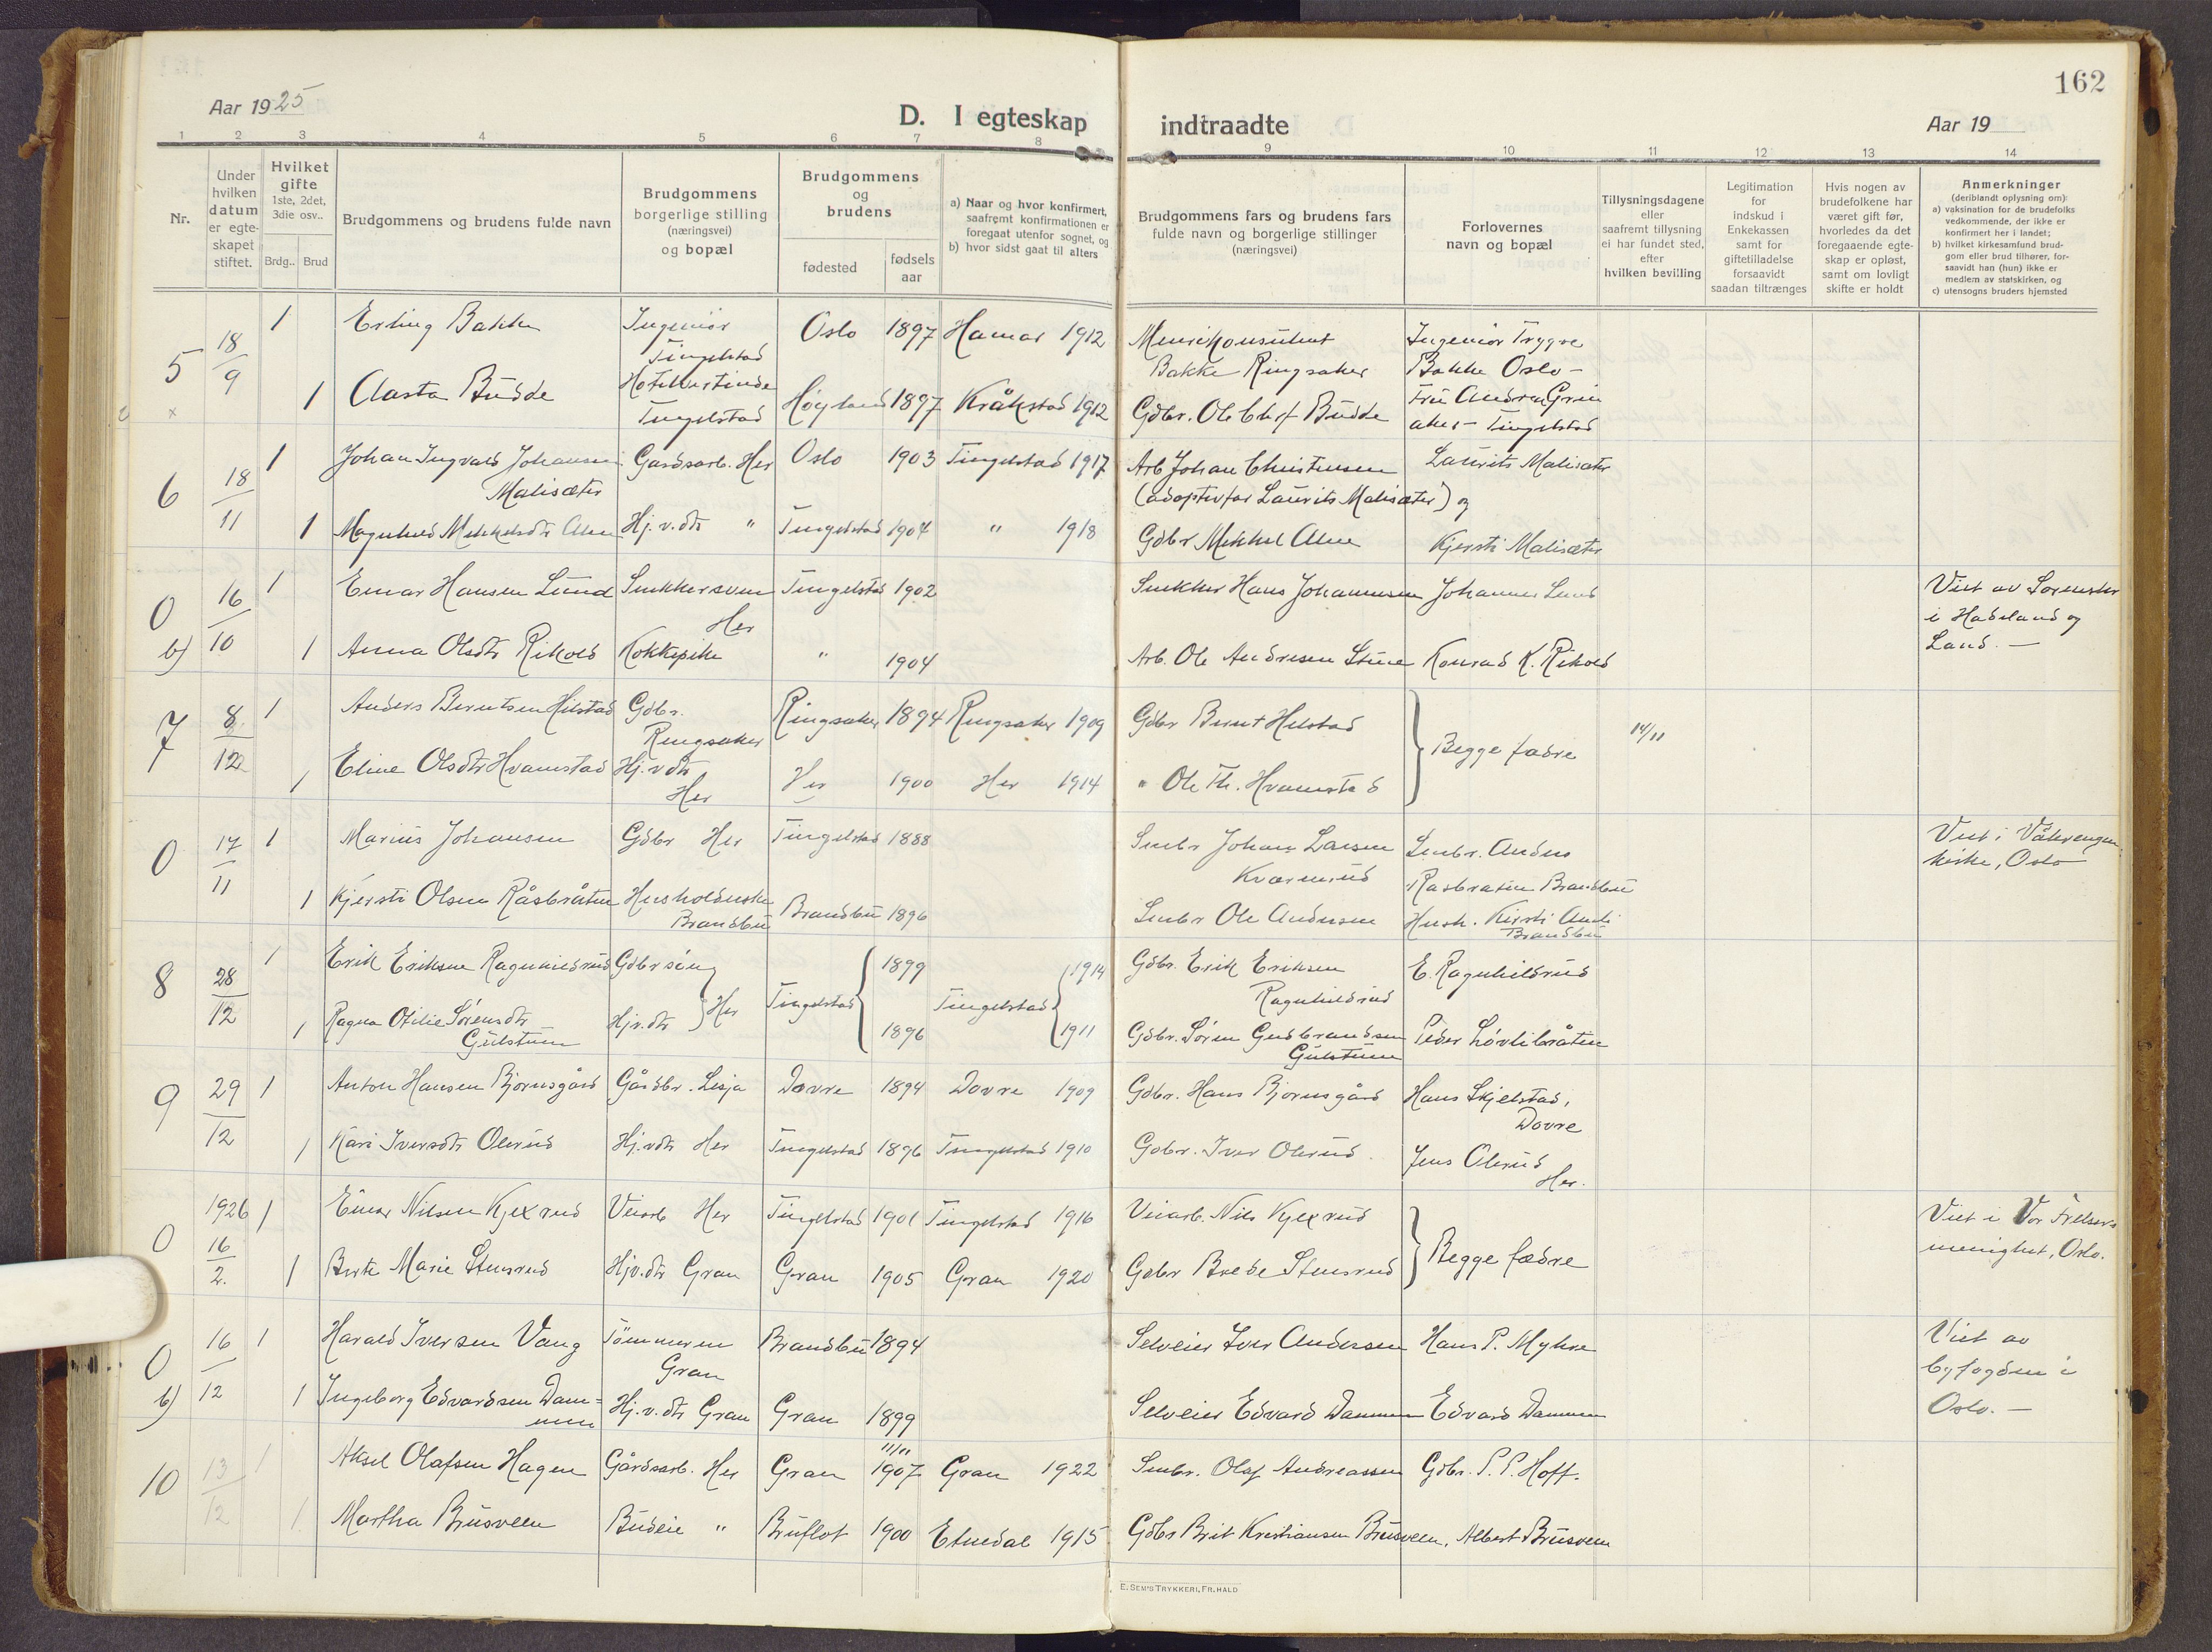 162
Aar 1925
D. I egteskap indtraadte
Aar 19
1 2 3 4 5 6 7 8 9 10 11 12 13 14
Nr.
Under hvilken datum er egteskapet stiftet.
Hvilket gifte 1ste, 2det, 3die osv..
Brdg.. Brud
Brudgommens og brudens fulde navn
Brudgommens borgerlige stilling (næringsvei) og bopæl
Brudgommens og brudens
fødested
fødsels aar
a) Naar og hvor konfirmert, saafremt konfirmationen er foregaat utenfor sognet, og
b) hvor sidst gaat til alters
Brudgommens fars og brudens fars fulde navn og borgerlige stillinger (næringsvei)
Forlovernes navn og bopæl
Tillysningsdagene eller saafremt tillysning ei har fundet sted, efter hvilken bevilling
Legitimation for indskud i Enkekassen samt for giftetilladelse forsaavidt saadan tiltrænges
Hvis nogen av brudefolkene har været gift før, hvorledes da det foregaaende egteskap er opløst, samt om lovligt skifte er holdt
Anmerkninger (deriblandt oplysning om):
a) vaksination for de brudefolks vedkommende, der ikke er konfirmert her i landet;
b) hvilket kirkesamfund brudgom eller brud tilhører, forsaavidt han (hun) ikke er medlem av statskirken, og
c) utensogns bruders hjemsted
5 18/9 1 Erling Bakke Ingeniør Tingelstad Oslo 1897 Hamar 1912
Bakke Ringsaker Ingeniør Trygve Bakke Oslo -
1 Aasta Budde Hotelvertinde Tingelstad Høyland 1897 Kråkstad 1912 Gdbr. Ole Chrf Budde Tingelstad
6 18/11 1 Johan Ingvald Johansen Malisæter Gardsarb. Her Oslo 1903 Tingelstad 1917 Arb Johan Christensen Laurits Malisæter
(adoptivfar Laurits Malisæter) og
1 Magnhild Mikkelsdtr Alm Hj. v. dtr " Tingelstad 1904 " 1918 Gdbr Mikkel Alm Kjersti Malisæter
0 b) 16/10 1 Einar Hansen Lund Snekkersvenn Her Tingelstad 1902 Snekker Hans Johannesen Johannes Lund Viet av Sorenskr i Hadeland og Land. -
1 Anna Olsdtr Rikold Kokkepike " 1904 Arb. Ole Andresen Konrad K. Rikold
7 8/12 1 Anders Berntsen Hilstad Gdbr. Ringsaker Ringsaker 1894 Ringsaker 1909 Gdbr Bernt Hilstad Begge fædre 14/11
1 Eline Olsdtr Hvamstad Hj. v dtr Her Her 1900 Her 1914 " Ole Th. Hvamstad
0 17/11 1 Marius Johansen Gdbr Her Tingelstad 1888 Smbr Johan Larsen Kværnrud Smbr. Anders Råsbråten Brandbu Viet i Vålerengen kirke, Oslo
1 Kjersti Olsen Råsbråten Husholderske Brandbu Brandbu 1896 Smbr Ole Andersen Hush. Kirsti Brandbu
8 28/12 1 Erik Eriksen Ragnhildrud Gdbr søn Her Tingelstad 1899 Tingelstad 1914 Gdbr. Erik Eriksen Ragnhildrud E. Ragnhildrud
1 Ragna Otilie Sørensdtr Gulstuen Hjv. dtr 1896 1911 Gdbr. Søren Gudbrandsen Gulstuen Peder Løvlibråten
9 29/12 1 Anton Hansen Bjørnsgård Gårdbr. Lesja Dovre 1894 Dovre 1909 Gdbr. Hans Bjørnsgård Hans Skjelstad, Dovre
1 Kari Iversdtr Olerud Hj. vdtr Her Tingelstad 1896 Tingelstad 1910 Gdbr. Iver Olerud Jens Olerud Her.
0 1926 16/2. 1 Einar Nilsen Kjexrud Veiarb Her Tingelstad 1901 Tingelstad 1916 Veiarb. Nils Kjexrud Begge fædre Viet i Vor Frelsers menighet, Oslo.
1 Berte Marie Stensrud Hjv. dtr Gran Gran 1905 Gran 1920 Gdbr Brede Stensrud
0 b) 16/12 1 Harald Iversen Vang Tömmerm Gran Brandbu 1894 Selveier Iver Andersen Hans P. Myhre Viet av byfogden i Oslo. -
1 Ingeborg Edvardsen Dammen Hj. v. dtr Gran Gran 1899 Selveier Edvard Dammen Edvard Dammen
10 13/12 1 Aksel Olafsen Hagen Gårdsarb. Her Gran 11/11 1907 Gran 1922 Smbr. Olaf Andreassen Gdbr. P. P. Hoff.
1 Martha Brusveen Budeie " Bruflat 1900 Etnedal 1915 Gdbr Brit Kristiansen Brusveen, Albert Brusveen
E. SEM'S TRYKKERI, FR.HALD